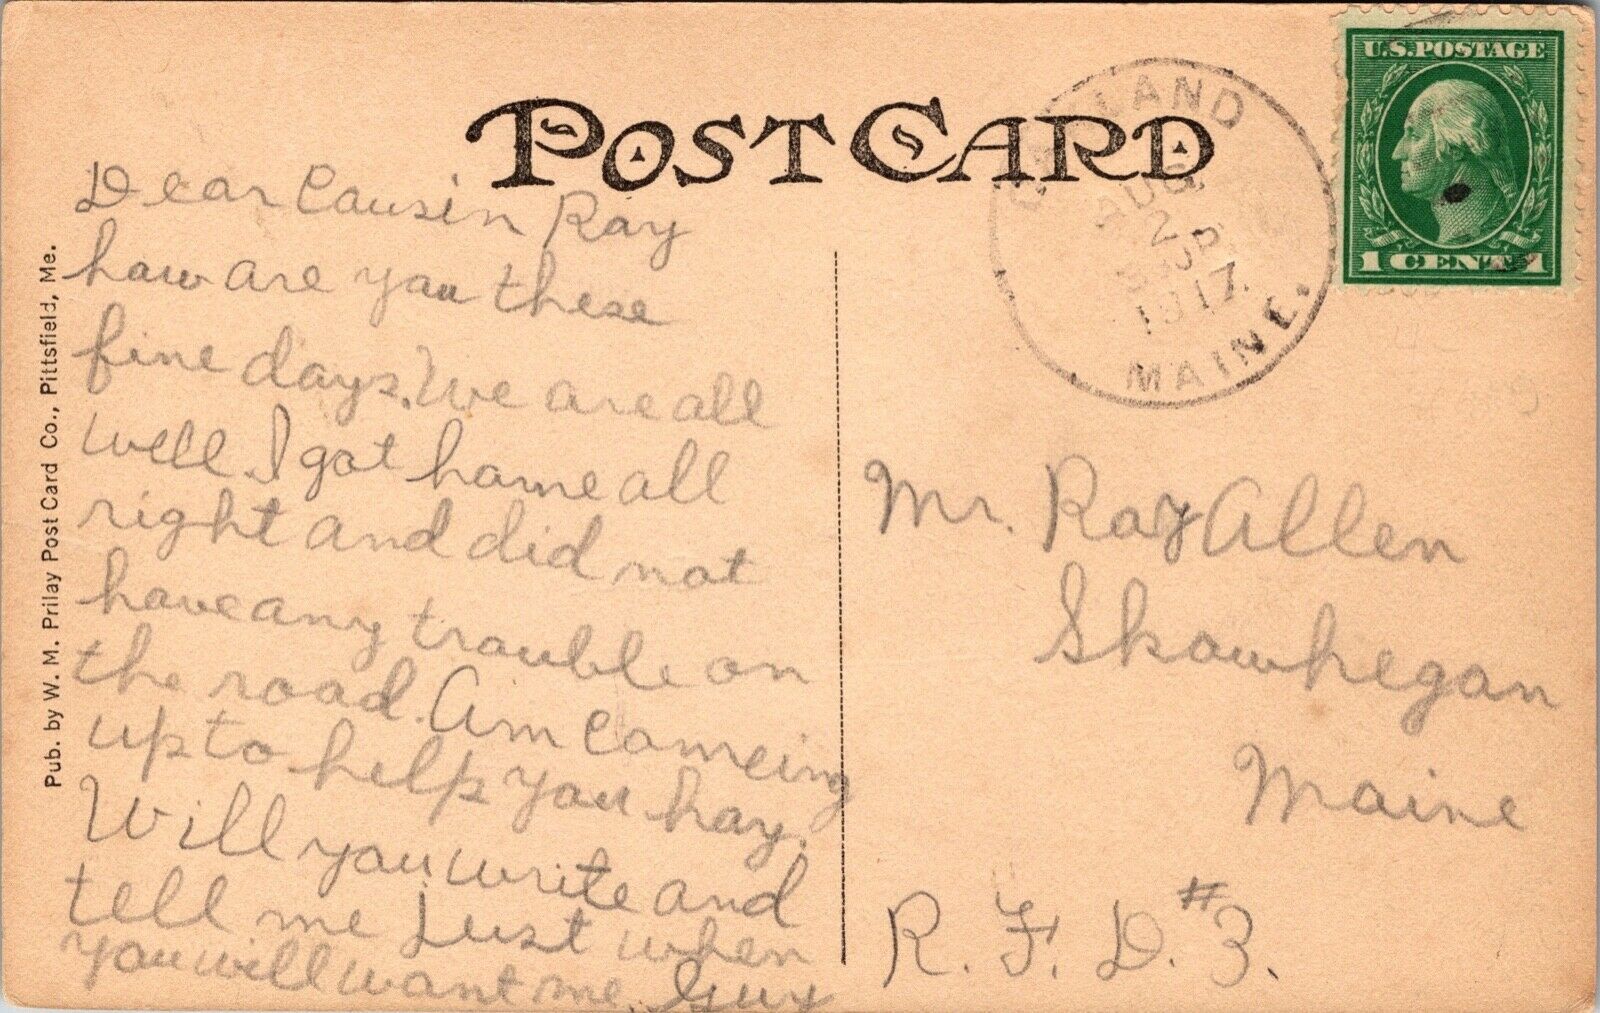 POST CARD
U.S. POSTAGE
1 CENT 1
AUG
2
1917
MAINE.
Pub. by W. M. Prilay Post Card Co., Pittsfield, Me.
Dear Cousin Ray
how are you these
fine days. We are all
well. I got home all
right and did not
have any trouble on
the road. Am comeing
up to help you hay.
Will you write and
tell me just when
you will want me. Guy
Mr. Ray Allen
Skowhegan
Maine
R. F. D. #3.